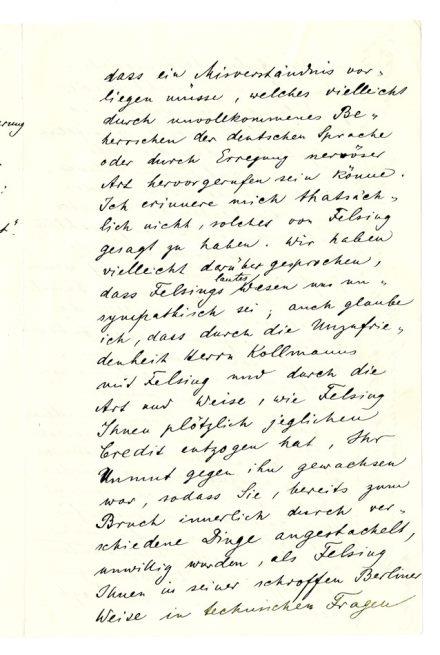 dass ein Misverständnis vor-
liegen müsse, welches vielleicht
durch unvollkommenes Be-
herrschen der deutschen Sprache
oder durch Erregung nervöser
Art hervorgerufen sein könne.
Ich erinnere mich thatsäch-
lich nicht, solches von Felsing
gesagt zu haben. Wir haben
vielleicht darüber gesprochen,
dass Felsings lautes Wesen uns un-
sympathisch sei; auch glaube
ich, dass durch die Unzufrie-
denheit Herrn Kollmanns
mit Felsing und durch die
Art und Weise, wie Felsing
Ihnen plötzlich jeglichen
Credit entzogen hat, Ihr
Unmut gegen ihn gewachsen
war, sodass Sie, bereits zum
Bruch innerlich durch ver-
schiedene Dinge angestachelt,
unwillig wurden, als Felsing
Ihnen in seiner schroffen Berliner
Weise in technischen Fragen